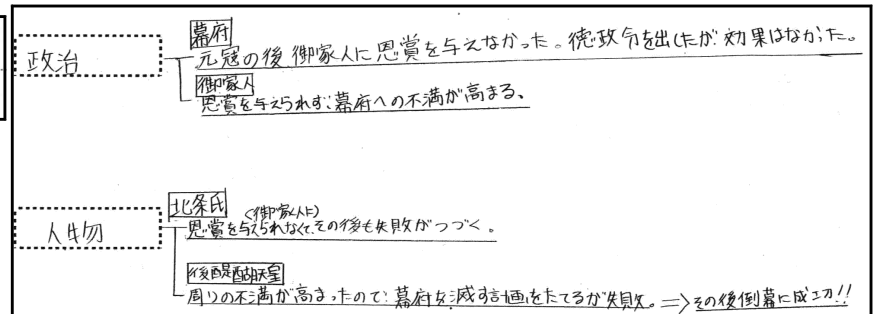 幕府
政治
元寇の後御家人に恩賞を与えなかった。徳政令を出したが効果はなかった。
御家人
恩賞を与えられず、幕府への不満が高まる、
北条氏
人物
(御家人に)
恩賞を与えられなくて、その後も失敗がつづく。
後醍醐天皇
周りの不満が高まったので、幕府を滅す計画をたてるが失敗。⇒その後倒幕に成功!!